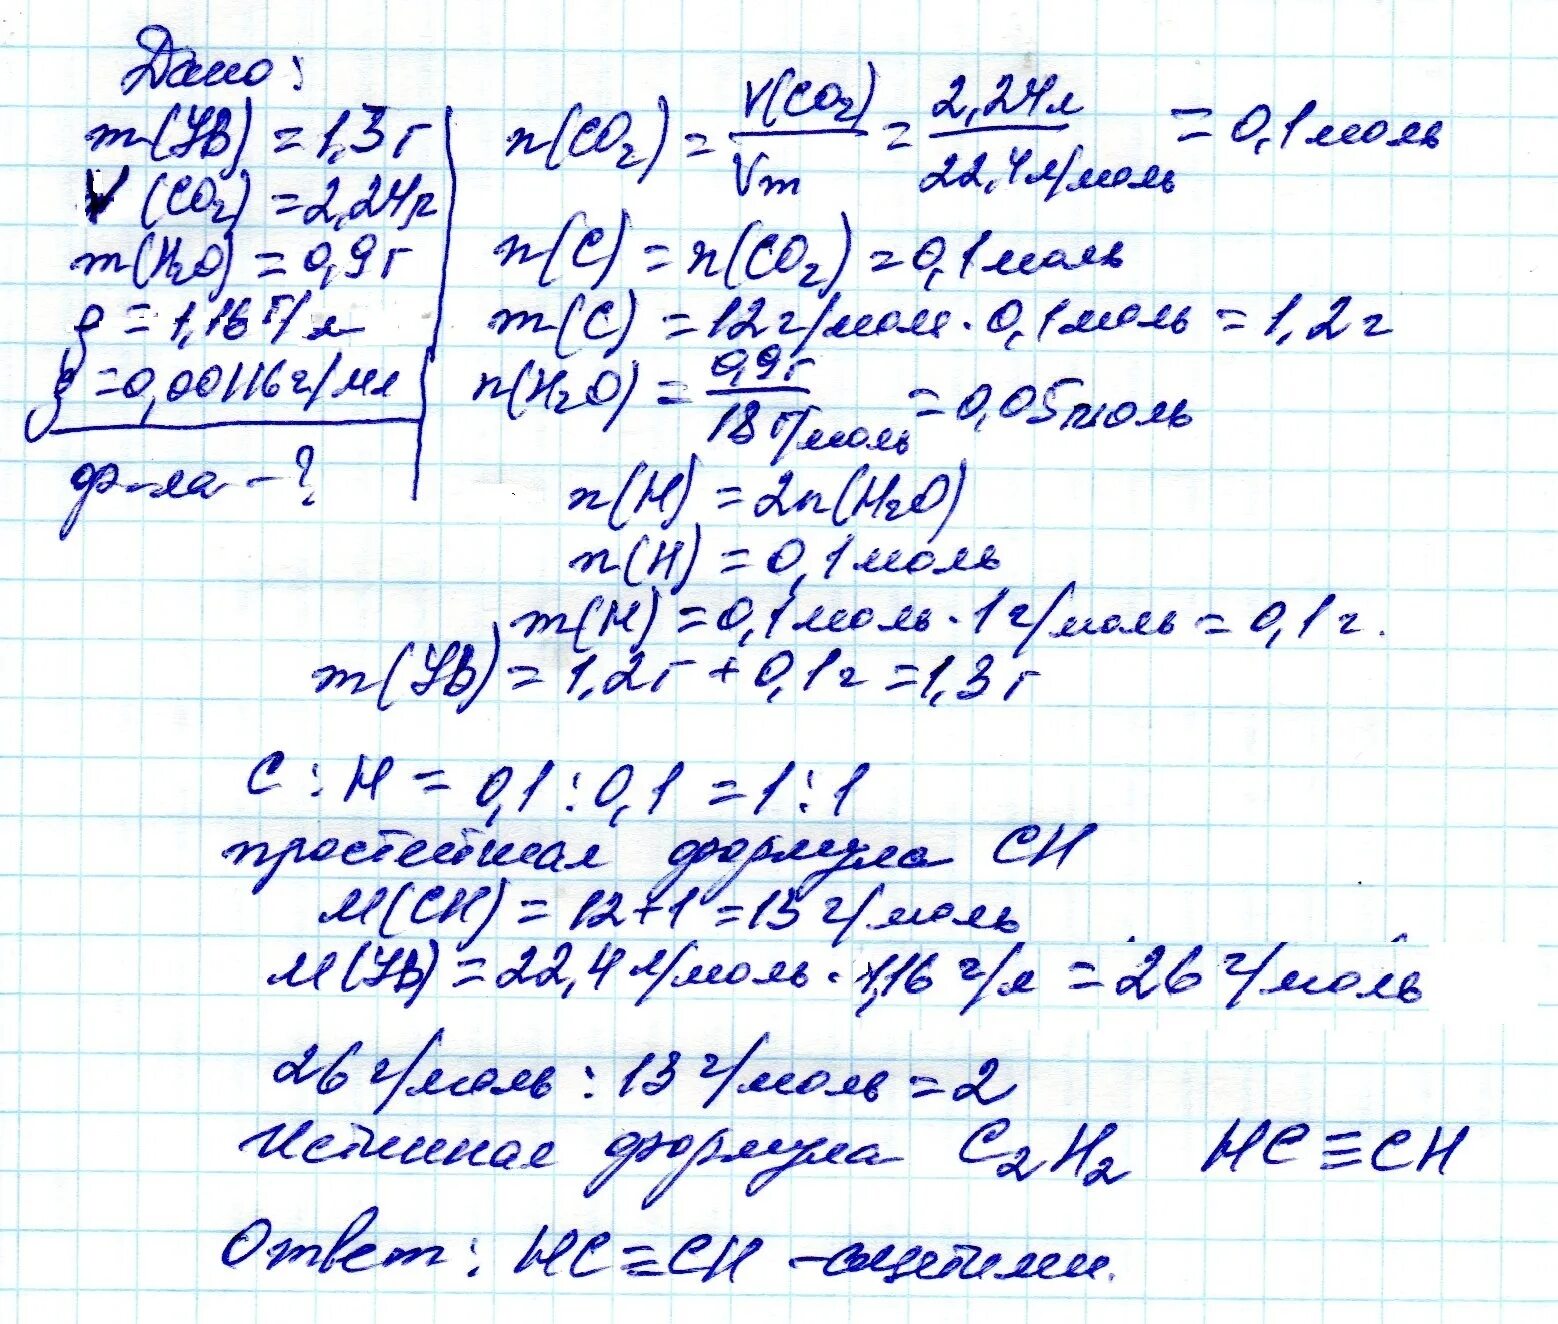 Дано:
m(УВ) = 1,3 г
V (CO₂) = 2,24 л
m(H₂O) = 0,9 г
ρ = 1,16 г/л
ρ = 0,00116 г/мл
ф-ла - ?
n(CO₂) = V(CO₂)/Vm = 2,24 л/22,4 л/моль = 0,1 моль
n(C) = n(CO₂) = 0,1 моль
m(C) = 12 г/моль · 0,1 моль = 1,2 г
n(H₂O) = 0,9 г/18 г/моль = 0,05 моль
n(H) = 2n(H₂O)
n(H) = 0,1 моль
m(H) = 0,1 моль · 1 г/моль = 0,1 г.
m(УВ) = 1,2 г + 0,1 г = 1,3 г
C : H = 0,1 : 0,1 = 1 : 1
простейшая формула CH
M(CH) = 12 + 1 = 13 г/моль
M(УВ) = 22,4 л/моль · 1,16 г/л = 26 г/моль
26 г/моль : 13 г/моль = 2
Истинная формула C₂H₂ HC≡CH
Ответ: HC≡CH - ацетилен.